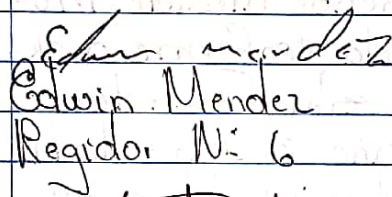 Edwin Mendez
Edwin Mendez
Regidor N: 6